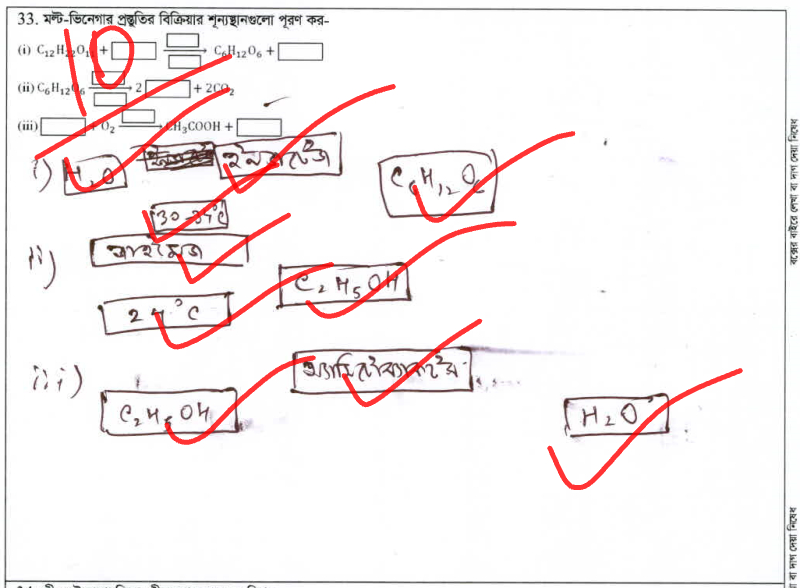 33. মল্ট-ভিনেগার প্রস্তুতির বিক্রিয়ার শূন্যস্থানগুলো পূরণ কর-
(i) C₁₂H₂₂O₁₁ + → C₆H₁₂O₆ +
(ii) C₆H₁₂O₆ → 2 + 2CO₂
(iii) + O₂ → CH₃COOH +
10
i) H₂O ইনভার্টেজ C₆H₁₂O₆
ii) জাইমেজ
C₂H₅OH
iii) অ্যাসিটোব্যাকটর
C₂H₅OH H₂O
বক্সের বাইরে লেখা বা দাগ দেয়া নিষেধ
বা দাগ দেয়া নিষেধ